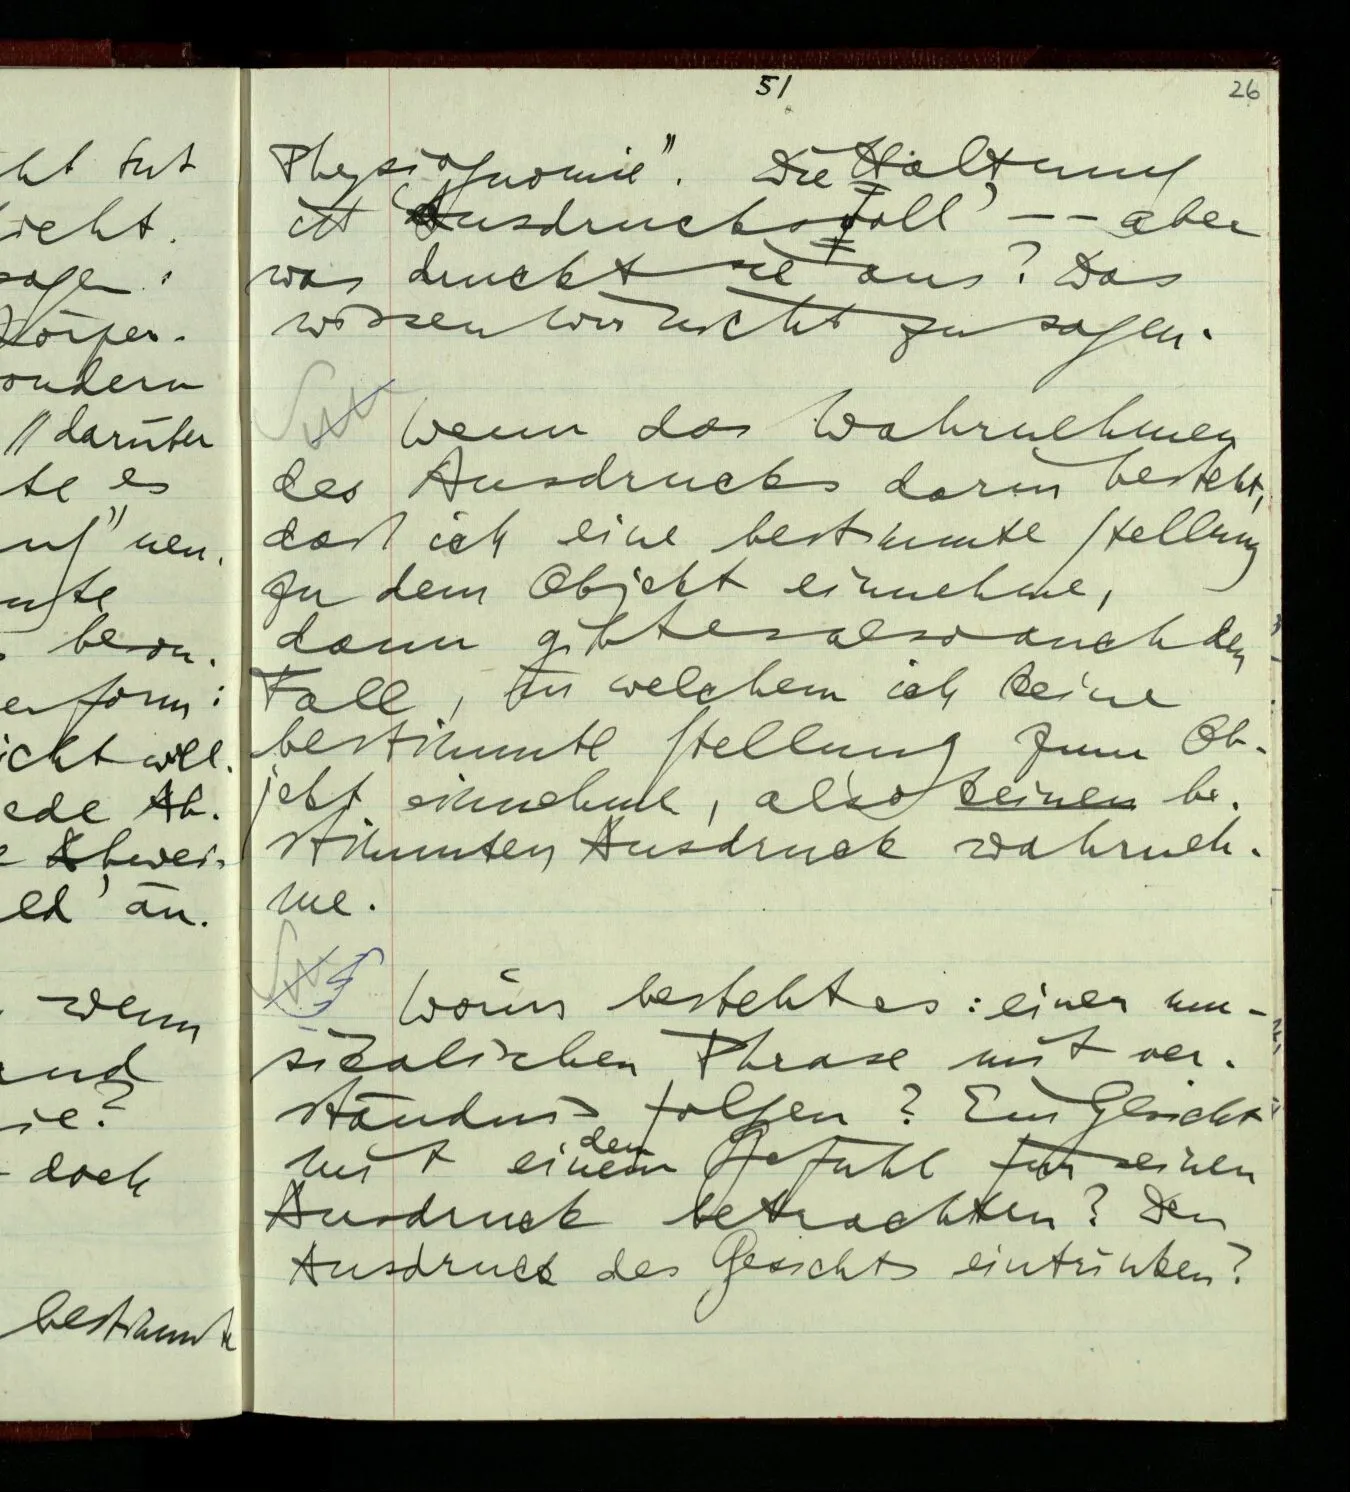 51
26
Physiognomie". Die Haltung
ist 'Ausdrucksvoll' -- aber
was druckt sie aus? Das
wissen wir nicht zu sagen.
Wenn das Wahrnehmen
des Ausdrucks darin besteht,
daß ich eine bestimmte Stellung
zu dem Objekt einnehme,
dann gibt es also auch den
Fall, in welchem ich keine
bestimmte Stellung zum Ob-
jekt einnehme, also keinen be-
stimmten Ausdruck wahrneh-
me.
Worin besteht es: einer mu-
sikalischen Phrase mit Ver-
ständnis folgen? Ein Gesicht
den
mit einem Gefühl für seinen
Ausdruck betrachten? Den
Ausdruck des Gesichts eintrinken?
icht.
sagen:
Körper-
sondern
darüber
te es
auf" nen.
beson-
form:
icht will.
ede Ab-
ld' an.
wenn
und
sie?
doch
bestimmte